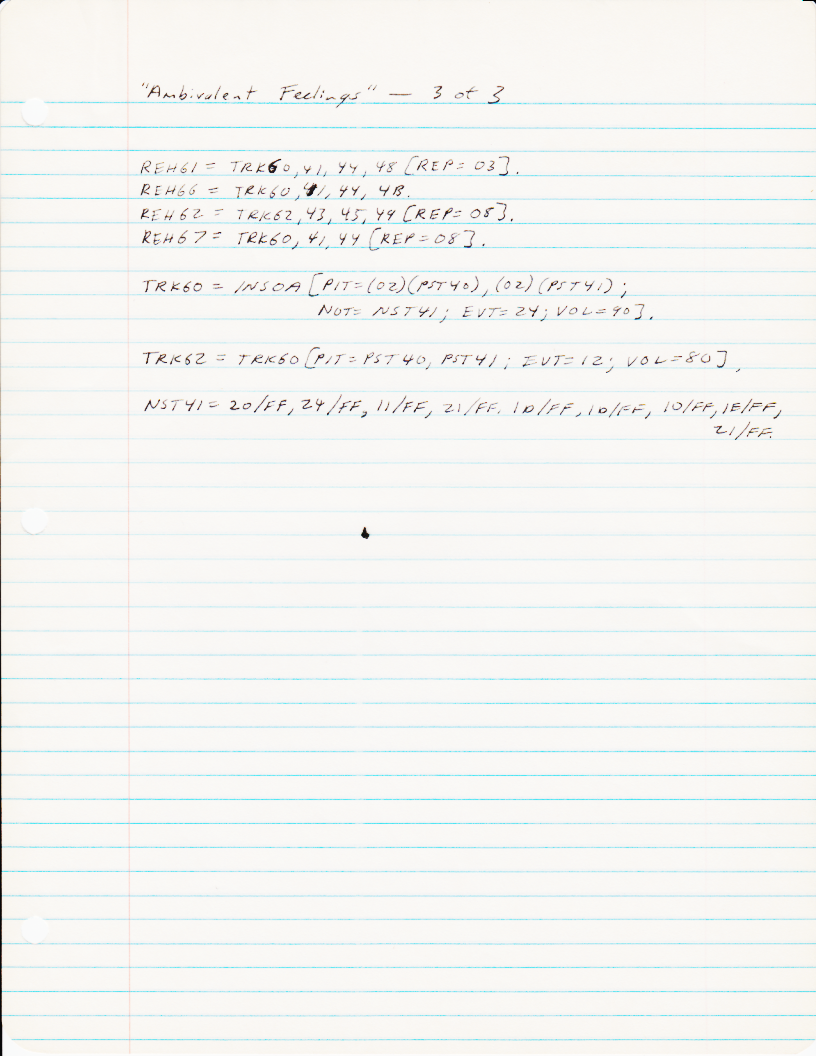 "Ambivalent Feelings" — 3 of 3
REH61 = TRK60, 41, 44, 48 [REP = 03].
REH66 = TRK60, 41, 44, 4B.
REH62 = TRK62, 43, 45, 49 [REP = 08].
REH67 = TRK60, 41, 44 [REP = 08].
TRK60 = INSOA [PIT = (02)(PST40), (02)(PST41);
NOT = NST41; EVT = 24; VOL = 90].
TRK62 = TRK60 [PIT = PST40, PST41; EVT = 12; VOL = 80],
NST41 = 20/FF, 24/FF, 11/FF, 21/FF. 1D/FF, 1D/FF, 10/FF, 1E/FF,
21/FF.